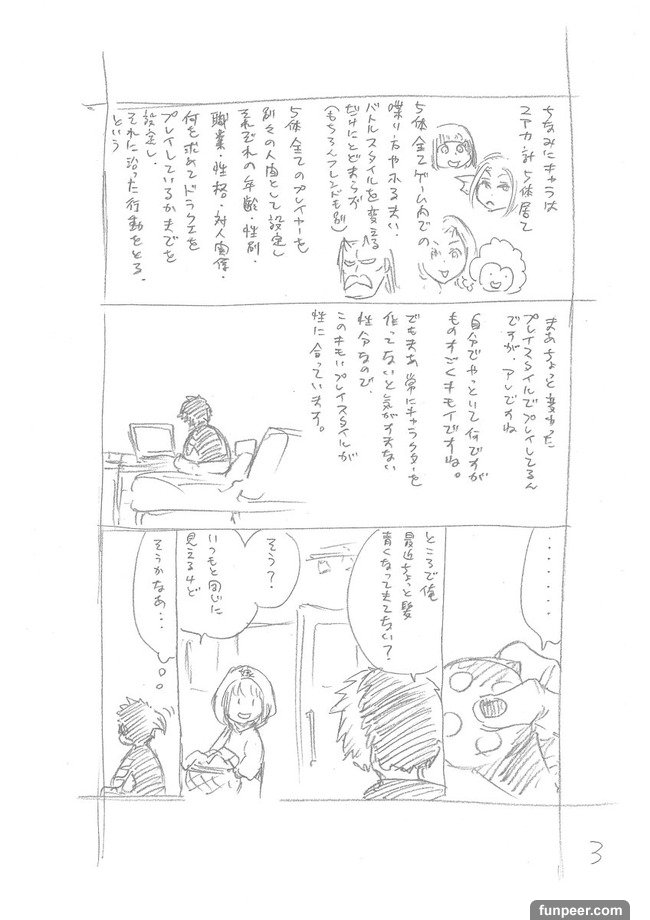 ちなみにキャラは
2アカ計5体居て
5体全てゲーム内での
喋り方やふるまい、
バトルスタイルを変える
だけにとどまらず
(もちろんフレンドも別)
5体全てのプレイヤーを
別々の人間として設定し
それぞれの年齢・性別・
職業・性格・対人関係・
何を求めてドラクエを
プレイしているかまでを
設定し、
それに沿った行動をとる。
という
まあちょっと変わった
プレイスタイルでプレイしてるん
ですが、アレですね
自分でやっといて何ですが
ものすごくキモイですね。
でもまあ常にキャラクターを
作ってないと気がすまない
性分なので、
このキモいプレイスタイルが
性に合っています。
・・・・・・・・
ところで俺
最近ちょっと髪
青くなってきてない?
そう?
いつもと同じに
見えるけど
そうかなあ・・・
3
funpeer.com